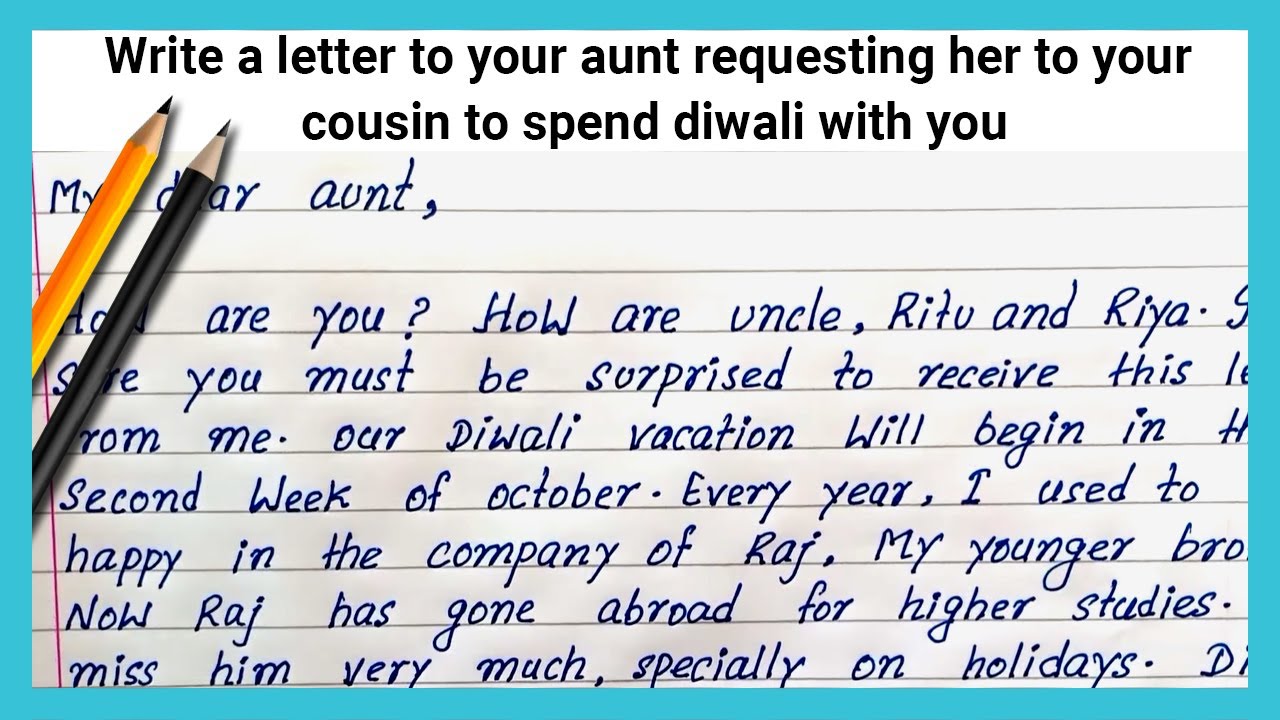 Write a letter to your aunt requesting her to your
cousin to spend diwali with you
My dear aunt,
How are you? How are uncle, Ritu and Riya.
Sure you must be surprised to receive this
from me. our Diwali vacation will begin in
Second week of october. Every year, I used to
happy in the company of Raj. My younger
Now Raj has gone abroad for higher studies.
miss him very much, specially on holidays.